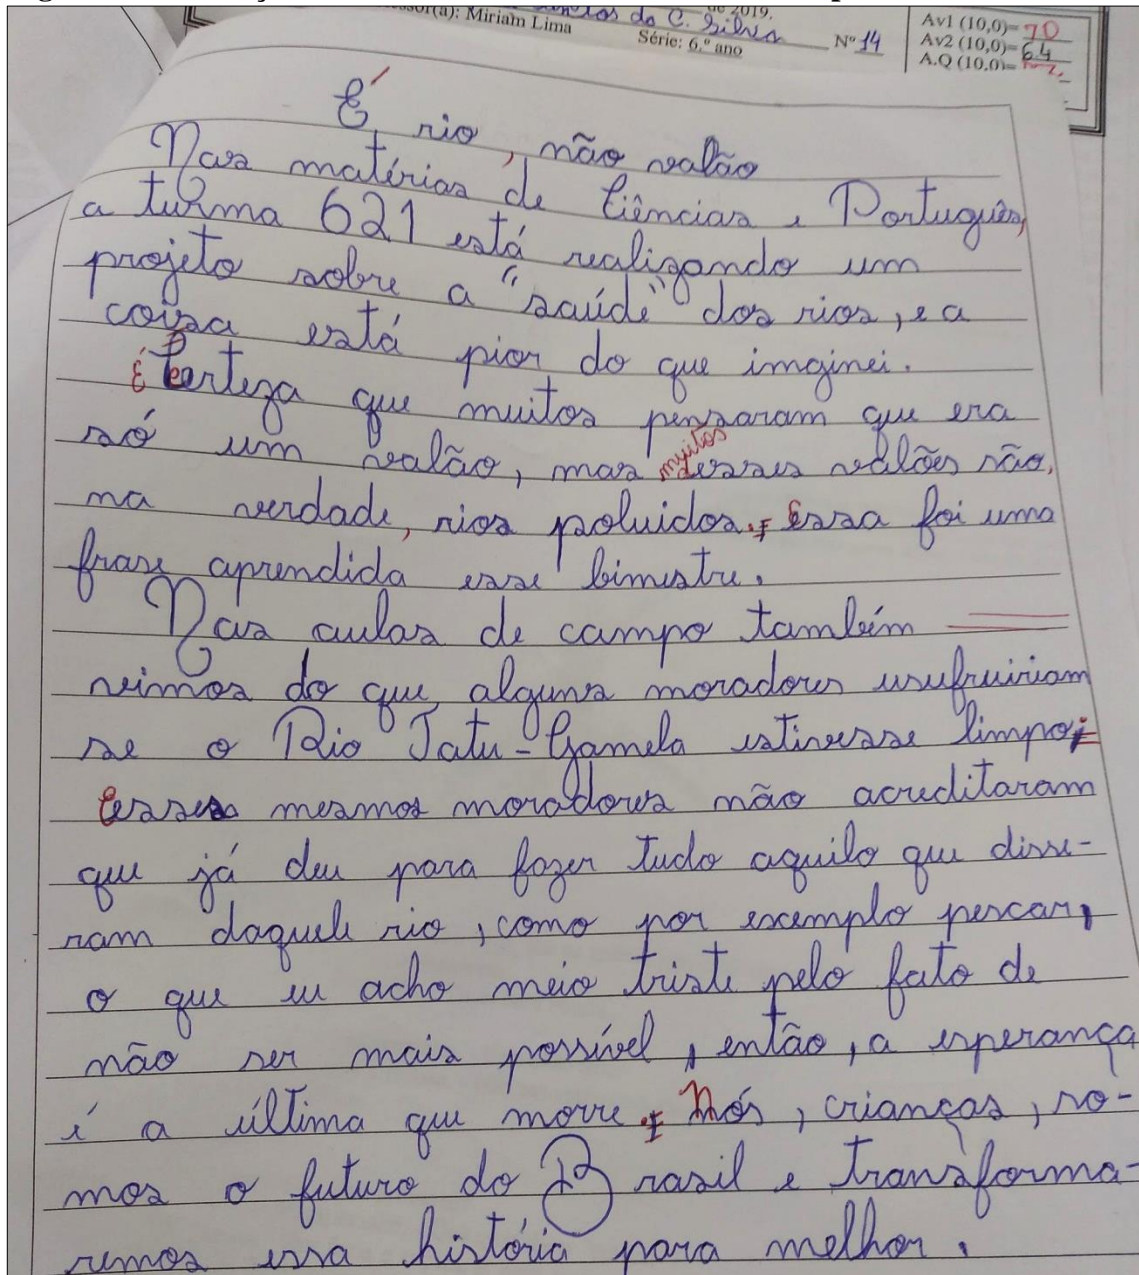 Miriam Lima
do C. Silva
de 2019.
Série: 6.º ano
Nº 14
Av1 (10,0)= 7,0
Av2 (10,0)= 6.4
A.Q (10,0)=
É rio, não valão
Nas matérias de Ciências e Português,
a turma 621 está realizando um
projeto sobre a "saúde" dos rios, e a
coisa está pior do que imginei.
É certeza que muitos pensaram que era
só um valão, mas muitos desses valões são,
na verdade, rios poluidos. Essa foi uma
frase aprendida esse bimestre.
Nas aulas de campo também
vimos do que alguns moradores usufruiriam
se o Rio Tatu-Gamela estivesse limpo;
esses mesmos moradores não acreditaram
que já deu para fazer tudo aquilo que disse-
ram daquele rio, como por exemplo pescar,
o que eu acho meio triste pelo fato de
não ser mais possível, então, a esperança
é a última que morre. Nós, crianças, so-
mos o futuro do Brasil e transforma-
remos essa história para melhor.